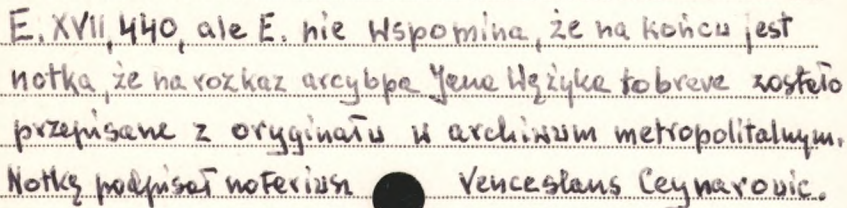 E. XVII, 440, ale E. nie wspomina, że na końcu jest
notka, że na rozkaz arcybpa Jana Wężyka to breve zostało
przepisane z oryginału w archiwum metropolitalnym.
Notkę podpisał notariusz Venceslaus Ceynarovic.